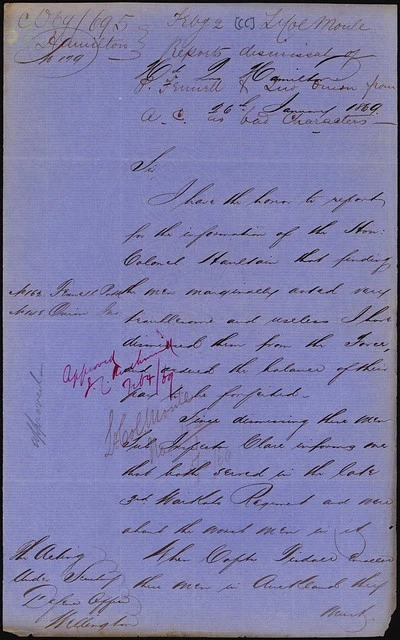 Feby 2 Lt Col Moule
Hamilton
Reports dismissal of
Hd Qrs Hamilton
P. Fennell & Owen from
26th January 1869
A. C. as bad Characters
Sir
I have the honor to report
for the information of the Hon:
Colonel Haultain that finding
No 162 Fennell
the men marginally noted very
No 145 Owen
troublesome and useless I have
dismissed them from the Force,
and ordered the balance of their
pay to be forfeited.
Approved
Feb 4/69
approved
Lt Col Moule
Since dismissing these men
Sub Inspector Clare informs me
that both served in the late
3rd Waikato Regiment and were
about the worst men in it
When Captn Tisdall
these men in Auckland they
The Acting
Under Secretary
Defence Office
Wellington